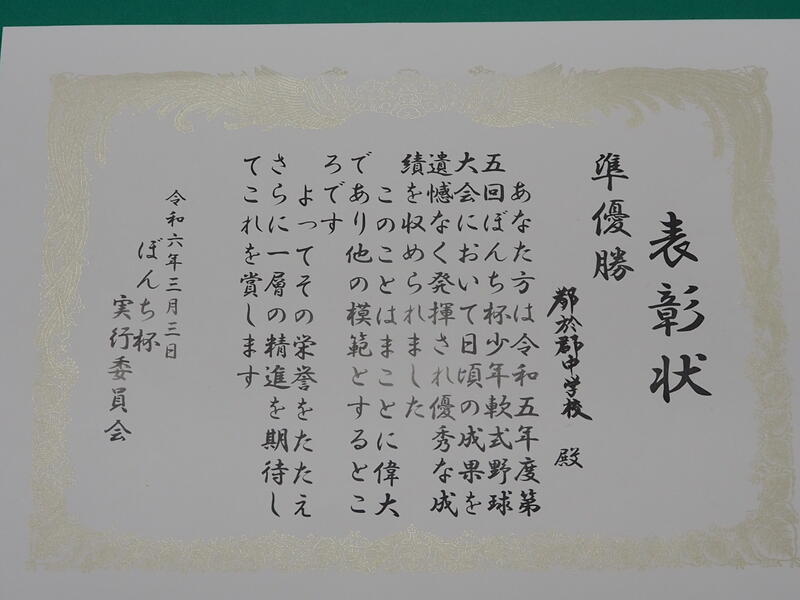 表彰状
準優勝
都於郡中学校 殿
あなた方は令和五年度第
五回ぼんち杯少年軟式野球
大会において日頃の成果を
遺憾なく発揮され優秀な成
績を収められました
このことはまことに偉大
であり他の模範とするとこ
ろです
よってその栄誉をたたえ
さらに一層の精進を期待し
てこれを賞します
令和六年三月三日
ぼんち杯
実行委員会